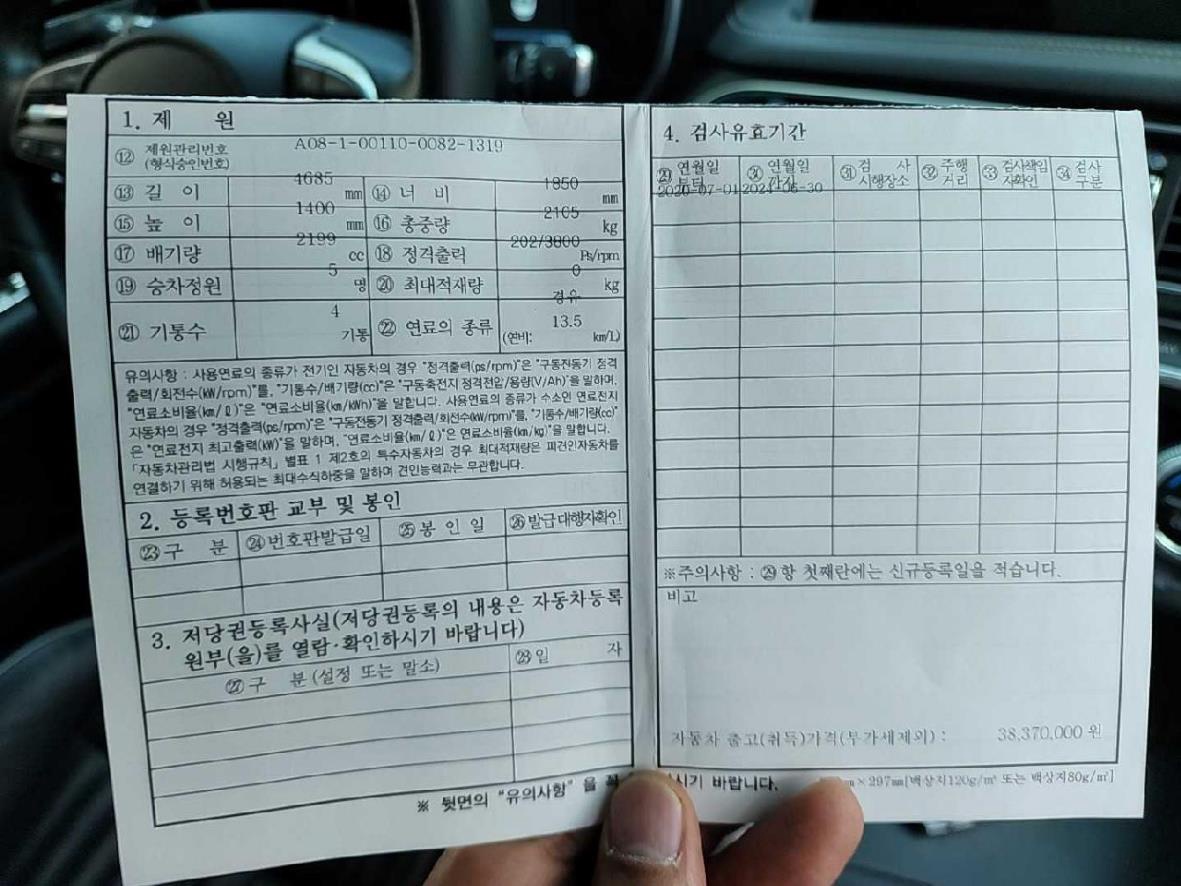 1. 제 원
⑫ 제원관리번호 (형식승인번호) A08-1-00110-0082-1319
⑬ 길 이 4685 mm ⑭ 너 비 1850 mm
⑮ 높 이 1400 mm ⑯ 총중량 2165 kg
⑰ 배기량 2199 cc ⑱ 정격출력 202/3800 Ps/rpm
⑲ 승차정원 5 명 ⑳ 최대적재량 0 kg
㉑ 기통수 4 기통 ㉒ 연료의 종류 경유 (연비: 13.5 km/L)
유의사항 : 사용연료의 종류가 전기인 자동차의 경우 "정격출력(ps/rpm)"은 "구동전동기 정격
출력/회전수(kW/rpm)"를, "기통수/배기량(cc)"은 "구동축전지 정격전압/용량(V/Ah)"을 말하며,
"연료소비율(km/ℓ)"은 "연료소비율(km/kWh)"을 말합니다. 사용연료의 종류가 수소인 연료전지
자동차의 경우 "정격출력(ps/rpm)"은 "구동전동기 정격출력/회전수(kW/rpm)"를, "기통수/배기량(cc)"
은 "연료전지 최고출력(kW)"을 말하며, "연료소비율(km/ℓ)"은 연료소비율(km/kg)"을 말합니다.
「자동차관리법 시행규칙」 별표 1 제2호의 특수자동차의 경우 최대적재량은 피견인자동차를
연결하기 위해 허용되는 최대수직하중을 말하며 견인능력과는 무관합니다.
2. 등록번호판 교부 및 봉인
㉓ 구 분 ㉔ 번호판발급일 ㉕ 봉 인 일 ㉖ 발급대행자확인
3. 저당권등록사실(저당권등록의 내용은 자동차등록
원부(을)를 열람·확인하시기 바랍니다)
㉗ 구 분 (설정 또는 말소) ㉘ 일 자
※ 뒷면의 "유의사항" 을 꼭
4. 검사유효기간
㉙ 연월일 부터 ㉚ 연월일 까지 ㉛ 검 사 시행장소 ㉜ 주행 거리 ㉝ 검사책임 자확인 ㉞ 검사 구분
2020-07-01 2024-06-30
※주의사항 : ㉙ 항 첫째란에는 신규등록일을 적습니다.
비고
자동차 출고(취득)가격(부가세제외) : 38,370,000 원
시기 바랍니다. ㎜×297㎜[백상지120g/㎡ 또는 백상지80g/㎡]